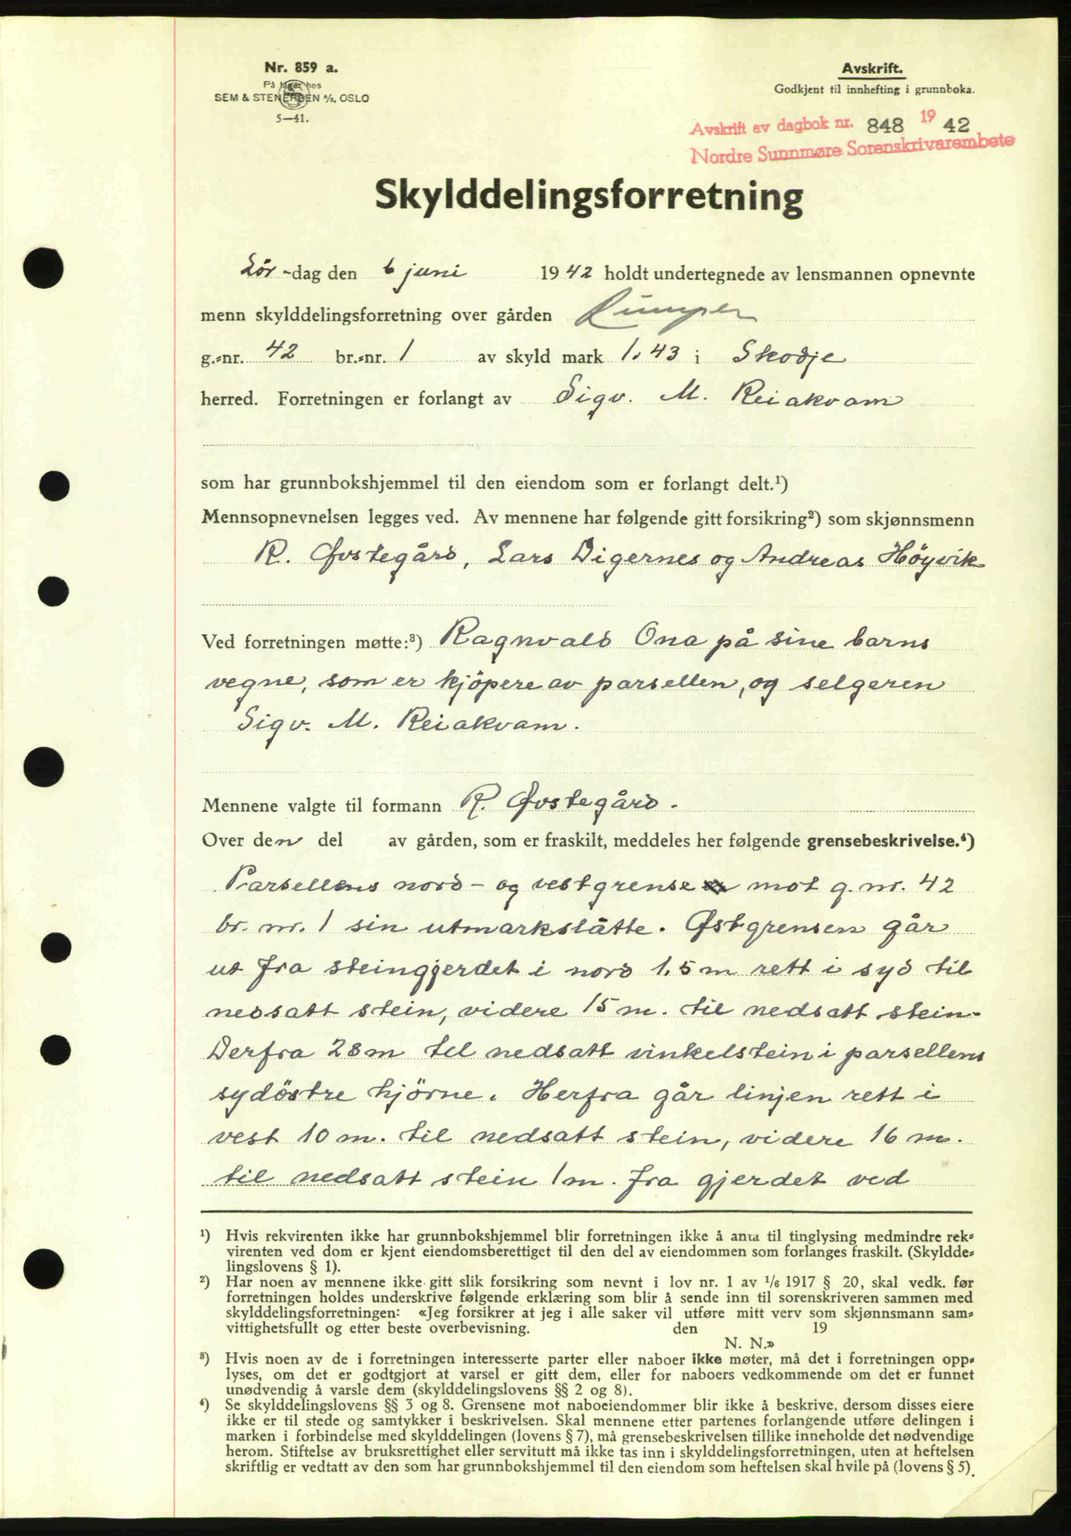 Nr. 859 a.
På lager hos
SEM & STENERSEN A/S, OSLO
5—41.
Avskrift.
Godkjent til innhefting i grunnboka.
Avskrift av dagbok nr. 848 1942
Nordre Sunnmøre Sorenskrivarembete
Skylddelingsforretning
Lør-dag den 6 juni 1942 holdt undertegnede av lensmannen opnevnte
menn skylddelingsforretning over gården Rumper
g.-nr. 42 br.-nr. 1 av skyld mark 1.43 i Skodje
herred. Forretningen er forlangt av Sigv. M. Reiakvam
som har grunnbokshjemmel til den eiendom som er forlangt delt.¹)
Mennsopnevnelsen legges ved. Av mennene har følgende gitt forsikring²) som skjønnsmenn
R. Øvstegård, Lars Digernes og Andreas Höyvik
Ved forretningen møtte:³) Ragnvald Ona på sine barns
vegne, som er kjöpere av parsellen, og selgeren
Sigv. M. Reiakvam.
Mennene valgte til formann R. Øvstegård.
Over den del av gården, som er fraskilt, meddeles her følgende grensebeskrivelse.⁴)
Parsellens nord- og vestgrense mot g. nr. 42
br. nr. 1 sin utmarkslåtte. Østgrensen går
ut fra steingjerdet i nord 1.5 m rett i syd til
nedsatt stein, videre 15 m. til nedsatt stein.
Derfra 28 m til nedsatt vinkelstein i parsellens
sydöstre hjörne. Herfra går linjen rett i
vest 10 m. til nedsatt stein, videre 16 m.
til nedsatt stein 1 m. fra gjerdet ved
¹) Hvis rekvirenten ikke har grunnbokshjemmel blir forretningen ikke å anta til tinglysing medmindre rek-
virenten ved dom er kjent eiendomsberettiget til den del av eiendommen som forlanges fraskilt. (Skyldde-
lingslovens § 1).
²) Har noen av mennene ikke gitt slik forsikring som nevnt i lov nr. 1 av 1/6 1917 § 20, skal vedk. før
forretningen holdes underskrive følgende erklæring som blir å sende inn til sorenskriveren sammen med
skylddelingsforretningen: «Jeg forsikrer at jeg i alle saker vil utføre mitt verv som skjønnsmann sam-
vittighetsfullt og etter beste overbevisning. den 19
N. N.»
³) Hvis noen av de i forretningen interesserte parter eller naboer ikke møter, må det i forretningen opp-
lyses, om det er godtgjort at varsel er gitt dem, eller for naboers vedkommende om det er funnet
unødvendig å varsle dem (skylddelingslovens §§ 2 og 8).
⁴) Se skylddelingslovens §§ 3 og 8. Grensene mot naboeiendommer blir ikke å beskrive, dersom disses eiere
ikke er til stede og samtykker i beskrivelsen. Skal mennene etter partenes forlangende utføre delingen i
marken i forbindelse med skylddelingen (lovens § 7), må grensebeskrivelsen tillike inneholde det nødvendige
herom. Stiftelse av bruksrettighet eller servitutt må ikke tas inn i skylddelingsforretningen, uten at heftelsen
skriftlig er vedtatt av den som har grunnbokshjemmel til den eiendom som heftelsen skal hvile på (lovens § 5).